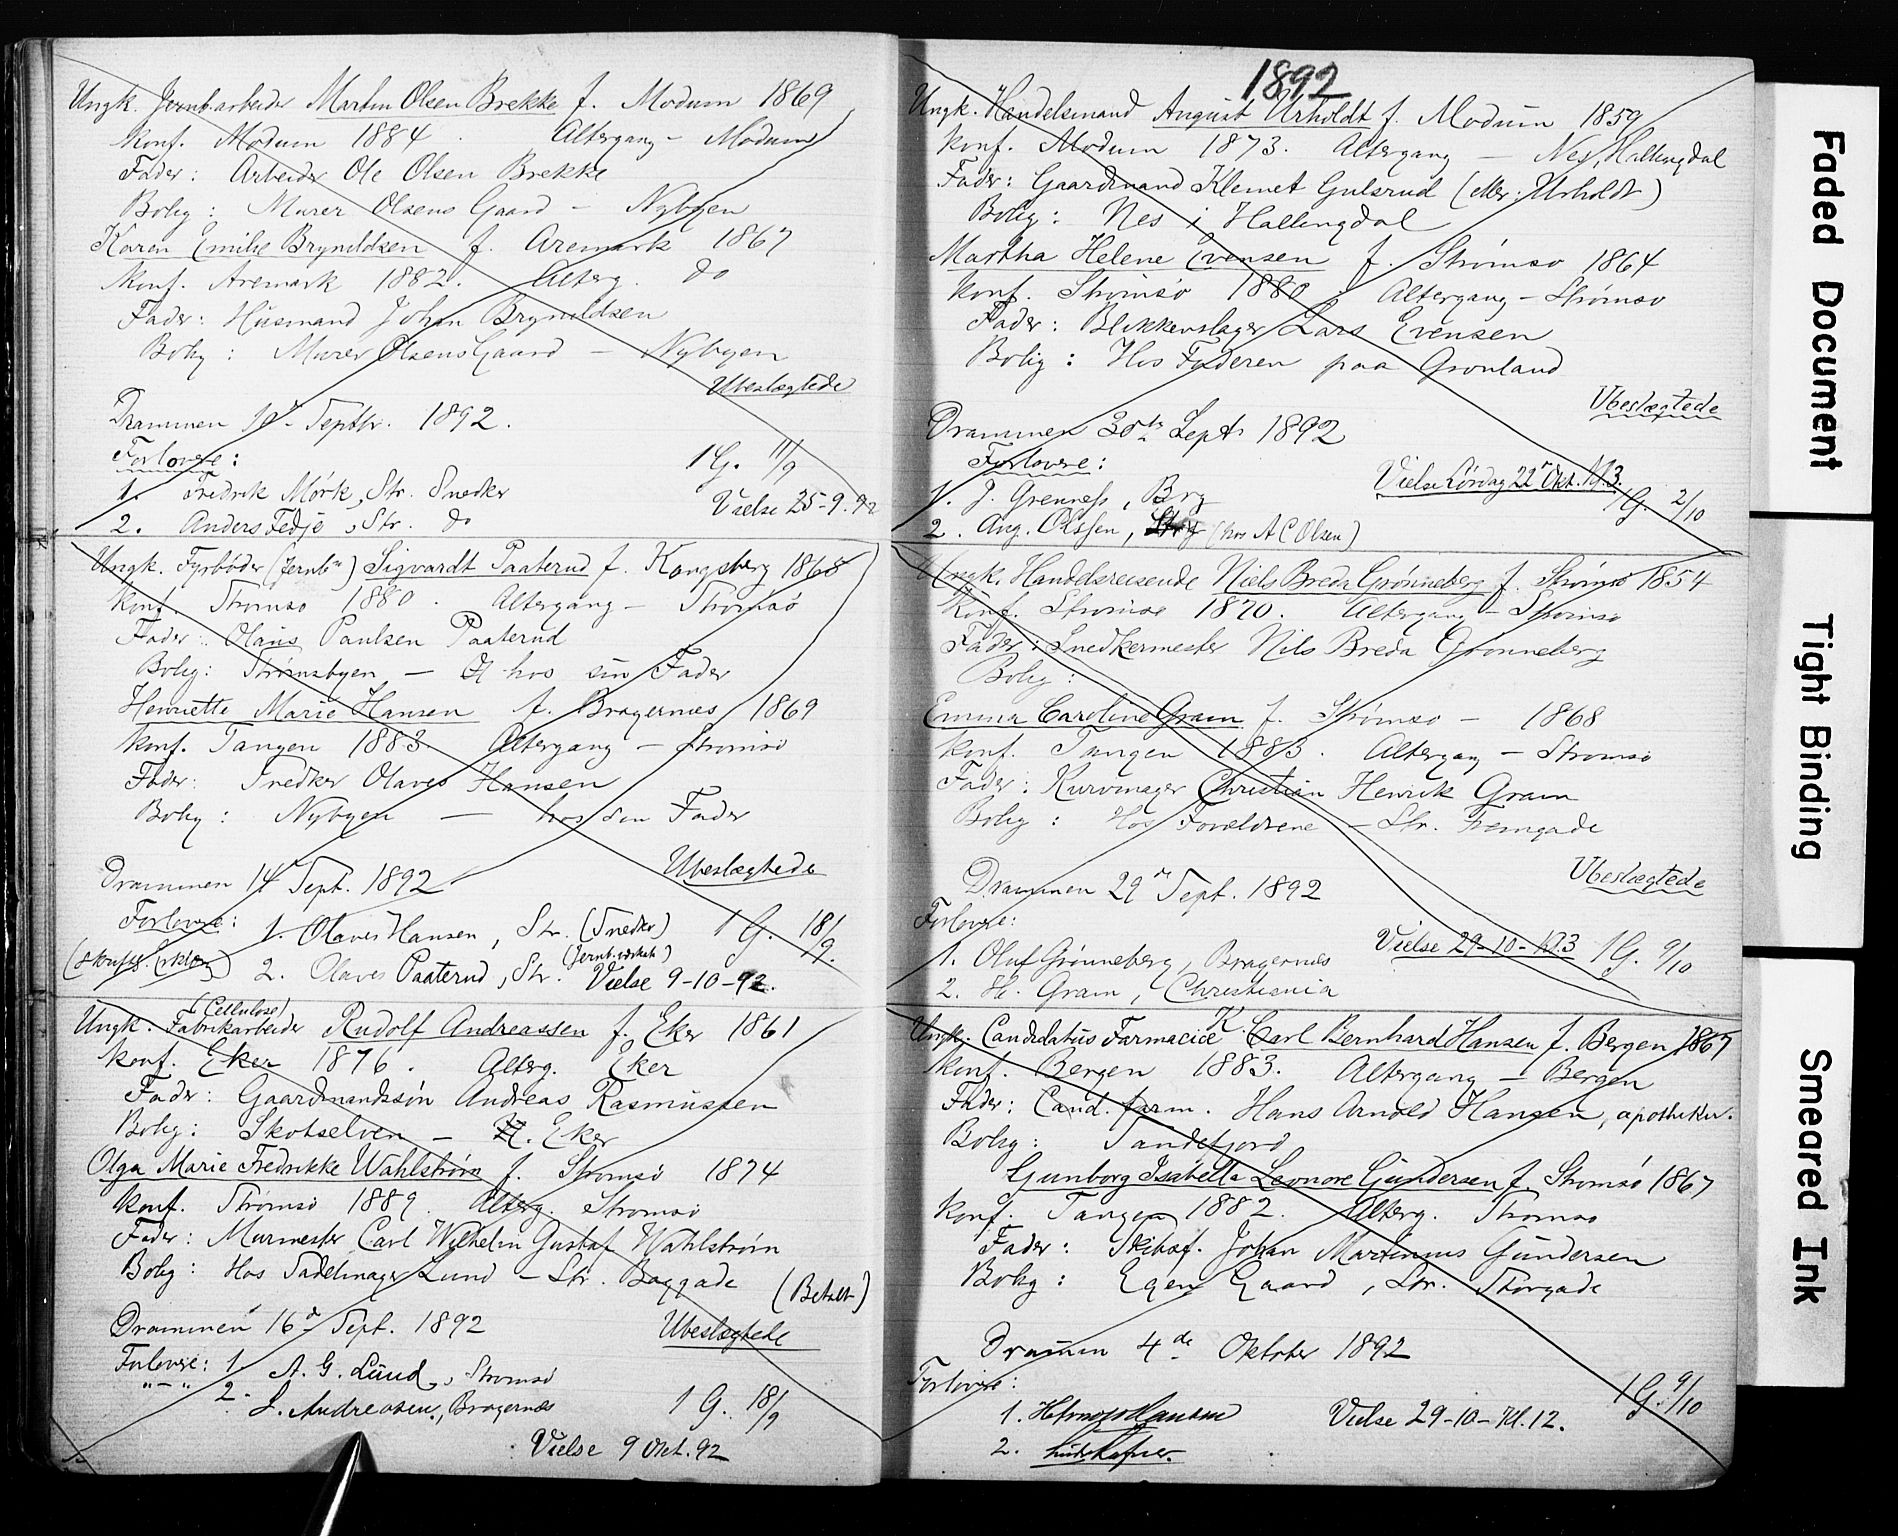 Ungk. Jernb.arbeider Martin Olsen Brekke f. Modum 1869
Konf. Modum 1884. Altergang - Modum
Fader: Arbeider Ole Olsen Brekke
Bolig: Murer Olsens Gaard - Nybyen
Karen Emilie Bryníldsen f. Aremark 1867
Konf. Aremark 1882. Alterg. do
Fader: Husmand Johan Brynildsen
Bolig: Murer Olsens Gaard - Nybyen
Ubeslægtede
Drammen Septbr. 1892.
Forlovere: 1 G. 11/9
1. Fredrik Mørk, Str. Snedker
Vielse 25-9-92
2. Anders Fedje, Str. do
Ungk. Fyrbøder (Jernb.) Sigvardt Paaterud f. Kongsberg 1865
Konf. Strømsø 1880. Altergang - Strømsø
Fader: Olaus Paulsen Paaterud
Bolig: Tørmsbyen - hos sin Fader
Henriette Marie Hansen f. Bragernes 1869
Konf. Tangen 1883. Altergang - Strømsø
Fader: Snedker Olaves Hansen
Bolig: Nybyen - hos sin Fader
Ubeslægtede
Drammen 14 Sept. 1892
Forlovere: 1. Olaves Hansen, Str. (Snedker) 1 G. 18/9.
2. Olaves Paaterud, Str. (Jernb.værkst.) Vielse 9-10-92.
(Cellulose)
Ungk. Fabrikarbeider Rudolf Andreassen f. Eker 1861
Konf. Eker 1876. Alterg. Eker
Fader: Gaardmandssøn Andreas Rasmussen
Bolig: Skotselven - Eker
Olga Marie Fredrikke Wahlstrøm f. Strømsø 1874
Konf. Strømsø 1889. Alterg. Strømsø
Fader: Murmester Carl Wilhelm Gustaf Wahlstrøm
Bolig: Hos Sadelmager Lund - Str. Baggade (Betalt)
Drammen 16d Sept. 1892 Ubeslægtede
Forlovere: 1. A. G. Lund, Strømsø
" - " 2. J. Andreasen, Bragernes 1 G. 18/9
Vielse 9 Okt. 92
1892
Ungk. Handelsmand August Urholdt f. Modum 1859
Konf. Modum 1873. Altergang - Nes, Hallingdal
Fader: Gaardmand Klemet Gulsrud (eller: Urholdt)
Bolig: Nes i Hallingdal
Martha Helene Evensen f. Strømsø 1864
Konf. Strømsø 1880. Altergang - Strømsø
Fader: Blikkenslager Lars Evensen
Bolig: Hos Faderen paa Grønland
Ubeslægtede
Drammen 30te Sept. 1892
Forlovere: Vielse Lørdag 22 Okt. Kl. 3.
1. J. Greness, Brg 1 G. 2/10
2. Aug. Olssen, (hos A C Olsen)
Ungk. Handelsreisende Niels Breda Grønneberg f. Strømsø 1854
Konf. Strømsø 1870. Altergang - Strømsø
Fader: Snedkermester Nils Breda Grønneberg
Bolig:
Emma Caroline Gram f. Strømsø - 1868
Konf. Tangen 1883. Altergang - Strømsø
Fader: Kurvmager Christian Henrik Gram
Bolig: Hos Forældrene - Str. Fremgade
Ubeslægtede
Drammen 29 Sept. 1892
Forlovere:
Vielse 29-10- Kl. 3 1 G. 9/10
1. Oluf Grønneberg, Bragernes
2. H. Gram, Christiania
Ungk. Candidatus Farmacice K. Carl Bernhard Hansen f. Bergen 1867
Konf. Bergen 1883. Altergang - Bergen
Fader: Cand. farm. Hans Arnold Hansen, apotheker.
Bolig: Sandefjord
Gunborg Isabella Leonore Gundersen f. Strømsø 1867
Konf. Tangen 1882. Alterg. Strømsø
Fader: Skibsf. Johan Martinius Gundersen
Bolig: Egen Gaard, Str. Storgade
Drammen 4de Oktober 1892
Forlovere: 1 G. 9/10
1. Hansen Vielse 29-10- Kl. 12.
2.
Faded Document
Tight Binding
Smeared Ink